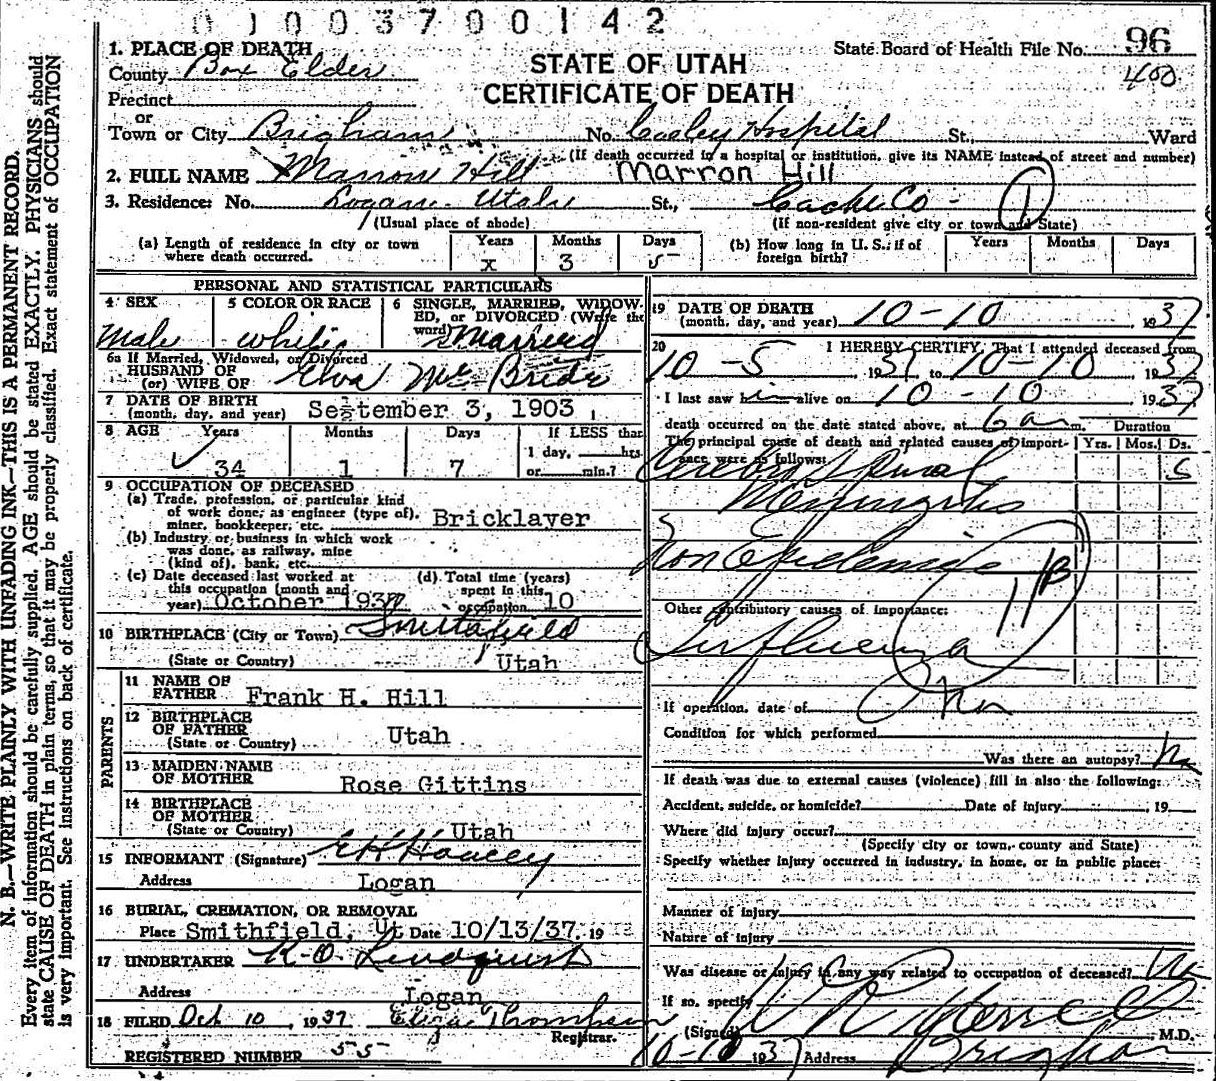 0100370014 2
1. PLACE OF DEATH
State Board of Health File No. 96
County Box Elder
STATE OF UTAH
400
Precinct
CERTIFICATE OF DEATH
or
Town or City Brigham No. Cooley Hospital St., Ward
(If death occurred in a hospital or institution, give its NAME instead of street and number)
2. FULL NAME Marron Hill Marron Hill
3. Residence: No. Logan Utah St., Cache Co - 1
(Usual place of abode) (If non-resident give city or town and State)
(a) Length of residence in city or town where death occurred. Years x Months 3 Days 5
(b) How long in U. S.: if of foreign birth? Years Months Days
PERSONAL AND STATISTICAL PARTICULARS
4 SEX Male
5 COLOR OR RACE white
6 SINGLE, MARRIED, WIDOWED, or DIVORCED (Write the word) Married
6a If Married, Widowed, or Divorced
HUSBAND OF
(or) WIFE OF Elva Mc Bride
7 DATE OF BIRTH
(month, day, and year) September 3, 1903
8 AGE Years 34 Months 1 Days 7 If LESS than 1 day, hrs. or min.?
9 OCCUPATION OF DECEASED
(a) Trade, profession, or particular kind
of work done, as engineer (type of),
miner, bookkeeper, etc. Bricklayer
(b) Industry or business in which work
was done, as railway, mine
(kind of), bank, etc.
(c) Date deceased last worked at
this occupation (month and
year) October 1937
(d) Total time (years)
spent in this
occupation 10
10 BIRTHPLACE (City or Town) Smithfield
(State or Country) Utah
PARENTS
11 NAME OF
FATHER Frank H. Hill
12 BIRTHPLACE
OF FATHER
(State or Country) Utah
13 MAIDEN NAME
OF MOTHER Rose Gittins
14 BIRTHPLACE
OF MOTHER
(State or Country) Utah
15 INFORMANT (Signature)
Address Logan
16 BURIAL, CREMATION, OR REMOVAL
Place Smithfield, Ut Date 10/13/37. 19
17 UNDERTAKER K-O. Lindquist
Address Logan
18 FILED Oct 10, 1937 Eliza Thomsen
Registrar.
REGISTERED NUMBER 55
19 DATE OF DEATH
(month, day, and year) 10-10 1937
20 I HEREBY CERTIFY, That I attended deceased from
10-5 1937 to 10-10 1937
I last saw him alive on 10-10 1937
death occurred on the date stated above, at 6 a m. Duration
The principal cause of death and related causes of importance were as follows: Yrs. Mos. Ds.
Cerebro Spinal 5
Meningitis
Non Epidemic
Other contributory causes of importance:
Influenza
If operation, date of no
Condition for which performed
Was there an autopsy? no
If death was due to external causes (violence) fill in also the following:
Accident, suicide, or homicide? Date of injury 19
Where did injury occur?
(Specify city or town, county and State)
Specify whether injury occurred in industry, in home, or in public place:
Manner of injury
Nature of injury
Was disease or injury in any way related to occupation of deceased? No
If so, specify
(Signed) M.D.
10-10 1937 Address Brigham
N. B.—WRITE PLAINLY WITH UNFADING INK—THIS IS A PERMANENT RECORD.
Every item of information should be carefully supplied. AGE should be stated EXACTLY. PHYSICIANS should
state CAUSE OF DEATH in plain terms, so that it may be properly classified. Exact statement of OCCUPATION
is very important. See instructions on back of certificate.